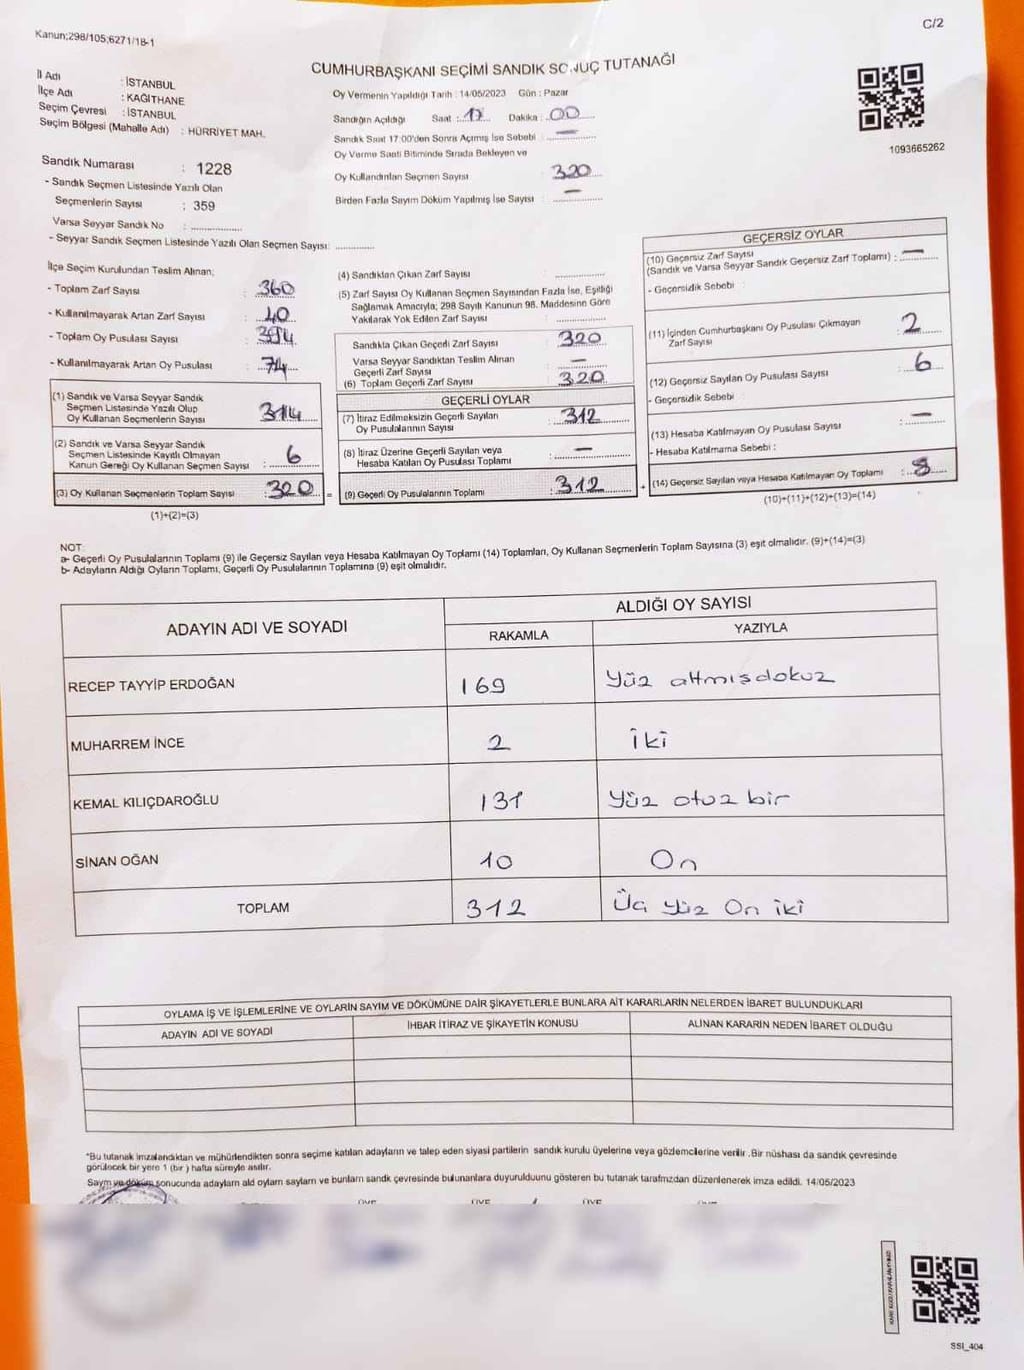 Kanun;298/105;6271/18-1
C/2
CUMHURBAŞKANI SEÇİMİ SANDIK SONUÇ TUTANAĞI
İl Adı : İSTANBUL
İlçe Adı : KAĞITHANE
Seçim Çevresi : İSTANBUL
Seçim Bölgesi (Mahalle Adı) : HÜRRİYET MAH.
Sandık Numarası : 1228
- Sandık Seçmen Listesinde Yazılı Olan
Seçmenlerin Sayısı : 359
Varsa Seyyar Sandık No : ................
- Seyyar Sandık Seçmen Listesinde Yazılı Olan Seçmen Sayısı: ............
Oy Vermenin Yapıldığı Tarih : 14/05/2023 Gün : Pazar
Sandığın Açıldığı Saat : 17 Dakika : 00
Sandık Saat 17:00'den Sonra Açmış İse Sebebi : —
Oy Verme Saati Bitiminde Sırada Bekleyen ve
Oy Kullandırılan Seçmen Sayısı 320
Birden Fazla Sayım Döküm Yapılmış İse Sayısı : —
1093665262
İlçe Seçim Kurulundan Teslim Alınan;
- Toplam Zarf Sayısı : 360
- Kullanılmayarak Artan Zarf Sayısı : 40
- Toplam Oy Pusulası Sayısı : 394
- Kullanılmayarak Artan Oy Pusulası : 74
(1) Sandık ve Varsa Seyyar Sandık
Seçmen Listesinde Yazılı Olup
Oy Kullanan Seçmenlerin Sayısı : 314
(2) Sandık ve Varsa Seyyar Sandık
Seçmen Listesinde Kayıtlı Olmayan
Kanun Gereği Oy Kullanan Seçmen Sayısı : 6
(3) Oy Kullanan Seçmenlerin Toplam Sayısı : 320
(1)+(2)=(3)
(4) Sandıktan Çıkan Zarf Sayısı : ............
(5) Zarf Sayısı Oy Kullanan Seçmen Sayısından Fazla İse, Eşitliği
Sağlamak Amacıyla; 298 Sayılı Kanunun 98. Maddesine Göre
Yakılarak Yok Edilen Zarf Sayısı : ............
Sandıkta Çıkan Geçerli Zarf Sayısı : 320
Varsa Seyyar Sandıktan Teslim Alınan
Geçerli Zarf Sayısı : —
(6) Toplam Geçerli Zarf Sayısı : 320
GEÇERLİ OYLAR
(7) İtiraz Edilmeksizin Geçerli Sayılan
Oy Pusulalarının Sayısı : 312
(8) İtiraz Üzerine Geçerli Sayılan veya
Hesaba Katılan Oy Pusulası Toplamı : —
= (9) Geçerli Oy Pusulalarının Toplamı : 312 +
GEÇERSİZ OYLAR
(10) Geçersiz Zarf Sayısı
(Sandık ve Varsa Seyyar Sandık Geçersiz Zarf Toplamı) : —
- Geçersizlik Sebebi :
(11) İçinden Cumhurbaşkanı Oy Pusulası Çıkmayan
Zarf Sayısı : 2
(12) Geçersiz Sayılan Oy Pusulası Sayısı : 6
- Geçersizlik Sebebi :
(13) Hesaba Katılmayan Oy Pusulası Sayısı : —
- Hesaba Katılmama Sebebi :
(14) Geçersiz Sayılan veya Hesaba Katılmayan Oy Toplamı : 8
(10)+(11)+(12)+(13)=(14)
NOT:
a- Geçerli Oy Pusulalarının Toplamı (9) ile Geçersiz Sayılan veya Hesaba Katılmayan Oy Toplamı (14) Toplamları, Oy Kullanan Seçmenlerin Toplam Sayısına (3) eşit olmalıdır. (9)+(14)=(3)
b- Adayların Aldığı Oyların Toplamı, Geçerli Oy Pusulalarının Toplamına (9) eşit olmalıdır.
ADAYIN ADI VE SOYADI
ALDIĞI OY SAYISI
RAKAMLA YAZIYLA
RECEP TAYYİP ERDOĞAN 169 Yüz altmışdokuz
MUHARREM İNCE 2 İki
KEMAL KILIÇDAROĞLU 131 Yüz otuz bir
SİNAN OĞAN 10 On
TOPLAM 312 Üç yüz On iki
OYLAMA İŞ VE İŞLEMLERİNE VE OYLARIN SAYIM VE DÖKÜMÜNE DAİR ŞİKAYETLERLE BUNLARA AİT KARARLARIN NELERDEN İBARET BULUNDUKLARI
ADAYIN ADI VE SOYADI İHBAR İTİRAZ VE ŞİKAYETİN KONUSU ALINAN KARARIN NEDEN İBARET OLDUĞU
*Bu tutanak imzalandıktan ve mühürlendikten sonra seçime katılan adayların ve talep eden siyasi partilerin sandık kurulu üyelerine veya gözlemcilerine verilir. Bir nüshası da sandık çevresinde
görülecek bir yere 1 (bir) hafta süreyle asılır.
Sayım ve döküm sonucunda adayların aldı oyların sayların ve bunların sandık çevresinde bulunanlara duyurulduunu gösteren bu tutanak tarafımızdan düzenlenerek imza edildi. 14/05/2023
ÜYE ÜYE ÜYE
SSI_404